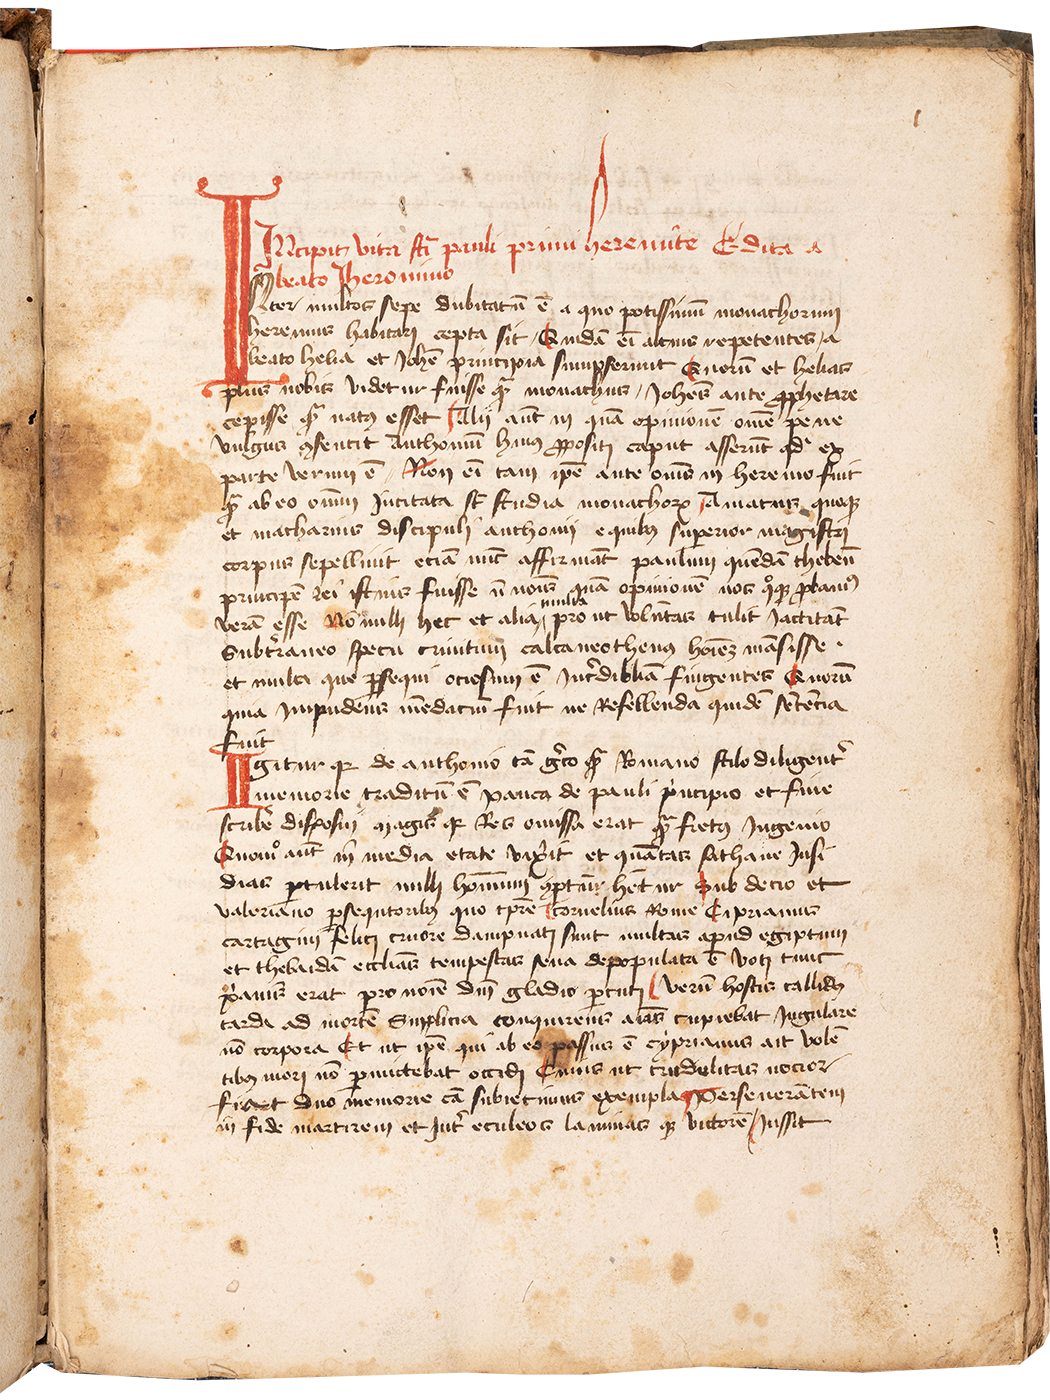 INcipit vita sti pauli primi heremite Edita a
beato Jheronimo
INter multos sepe dubitatū ē a quo potissimū monachorum
heremus habitari cepta sit / Quidā eī alcius repetentes / a
beato helia et Johē principia sumpserunt Quorū et helias
plus nobis videtur fuisse qᷓ monachus / Johēs ante ꝓphetare
cepisse qᷓ natꝰ esset Alij aūt in quā opinionē omē pene
vulgus ꝯsentit Anthoniū huiꝰ ꝓpositi caput asserūt qd ex
parte verum ē / Non eī tam ipē ante omīs in heremo fuit
qᷓ ab eo omīu Incitata sᷓt studia monachoꝝ Amatas quoqꝫ
et macharius discipuli anthonij equibꝰ superior magistri
corpus sepelliuit eciā nūc affirmāt paulum quendā thebeū
principē rei istius fuisse nō nomīs quā opinionē nos qᷓqꝫ ꝓbamꝰ
verā esse Nōnulli hec et alia / prout volūtas tulit Jactitāt
Subtᷓraneo specu crinitum calcaneothenus hoīez māsisse .
et multa que ꝑsequi ociosum ē Incᷓdibilia fingentes Quorū
quia Impudens mēdaciū fuit ne Refellenda quidē sētēcia
fuit
IGitur qꝫ de anthonio tā gᷓco qᷓ Romano stilo diligentᷓ
memorie traditū ē pauca de pauli pᷓncipio et fine
scribē disposui magis qꝫ Res omissa erat qᷓ fretꝰ Ingenio
Quomō aūt in media etate vixᷓit et quātas sathane Insi
dias ꝑtulerit nulli hoīmum ꝯꝑtū hētur Sub decio et
valeriano ꝑsequtoribꝰ quo tꝑre cornelius Rome Ciprianus
cartagini felici cruore dampnati sunt multas apud egiptum
et thebaidā ecclīas tempestas seua depopulata ē Voti tunc
xᷓpianis erat pro noīe dnī gladio ꝑcuti / verū hostis callidꝰ
tarda ad mortē Supplicia conquirens aīas cupiebat Jugulare
nō corpora Et ut ipē qui ab eo passus ē cyprianus ait volē
tibꝰ mori nō ꝑmictebat occidi Cuius ut crudelitas nocior
fieret duo memorie cā subiecimus exempla Perseuerātem
in fide martirem et Intᷓ eculeos laminas qꝫ victorē / Jussit